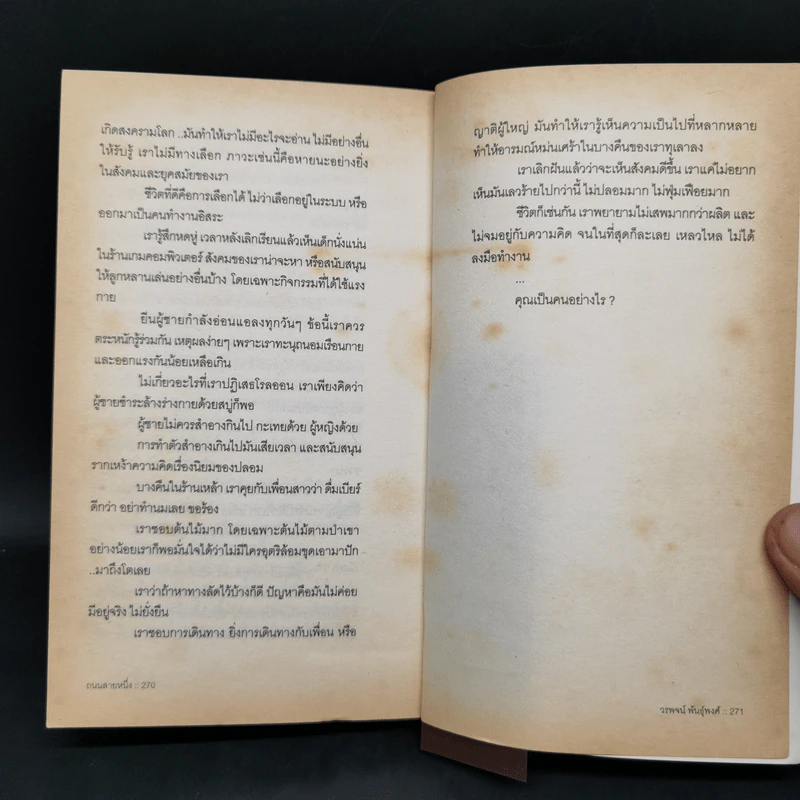 เกิดสงครามโลก ..มันทำให้เราไม่มีอะไรจะอ่าน ไม่มีอย่างอื่น
ให้รับรู้ เราไม่มีทางเลือก ภาวะเช่นนี้คือหายนะอย่างยิ่ง
ในสังคมและยุคสมัยของเรา
ชีวิตที่ดีคือการเลือกได้ ไม่ว่าเลือกอยู่ในระบบ หรือ
ออกมาเป็นคนทำงานอิสระ
เรารู้สึกหดหู่ เวลาหลังเลิกเรียนแล้วเห็นเด็กนั่งแน่น
ในร้านเกมคอมพิวเตอร์ สังคมของเราน่าจะหา หรือสนับสนุน
ให้ลูกหลานเล่นอย่างอื่นบ้าง โดยเฉพาะกิจกรรมที่ได้ใช้แรง
กาย
ยีนผู้ชายกำลังอ่อนแอลงทุกวันๆ ข้อนี้เราควร
ตระหนักรู้ร่วมกัน เหตุผลง่ายๆ เพราะเราทะนุถนอมเรือนกาย
และออกแรงกันน้อยเหลือเกิน
ไม่เกี่ยวอะไรที่เราปฏิเสธโรลออน เราเพียงคิดว่า
ผู้ชายชำระล้างร่างกายด้วยสบู่ก็พอ
ผู้ชายไม่ควรสำอางเกินไป กะเทยด้วย ผู้หญิงด้วย
การทำตัวสำอางเกินไปมันเสียเวลา และสนับสนุน
รากเหง้าความคิดเรื่องนิยมของปลอม
บางคืนในร้านเหล้า เราคุยกับเพื่อนสาวว่า ดื่มเบียร์
ดีกว่า อย่าทำนมเลย ขอร้อง
เราชอบต้นไม้มาก โดยเฉพาะต้นไม้ตามป่าเขา
อย่างน้อยเราก็พอมั่นใจได้ว่าไม่มีใครอุตริล้อมขุดเอามาปัก
..มาถึงโตเลย
เราว่าถ้าหาทางลัดไว้บ้างก็ดี ปัญหาคือมันไม่ค่อย
มีอยู่จริง ไม่ยั่งยืน
เราชอบการเดินทาง ยิ่งการเดินทางกับเพื่อน หรือ
ถนนสายหนึ่ง :: 270
ญาติผู้ใหญ่ มันทำให้เรารู้เห็นความเป็นไปที่หลากหลาย
ทำให้อารมณ์หม่นเศร้าในบางคืนของเราทุเลาลง
เราเลิกฝันแล้วว่าจะเห็นสังคมดีขึ้น เราแค่ไม่อยาก
เห็นมันเลวร้ายไปกว่านี้ ไม่ปลอมมาก ไม่ฟุ่มเฟือยมาก
ชีวิตก็เช่นกัน เราพยายามไม่เสพมากกว่าผลิต และ
ไม่จมอยู่กับความคิด จนในที่สุดก็ละเลย เหลวไหล ไม่ได้
ลงมือทำงาน
...
คุณเป็นคนอย่างไร ?
วรพจน์ พันธุ์พงศ์ :: 271